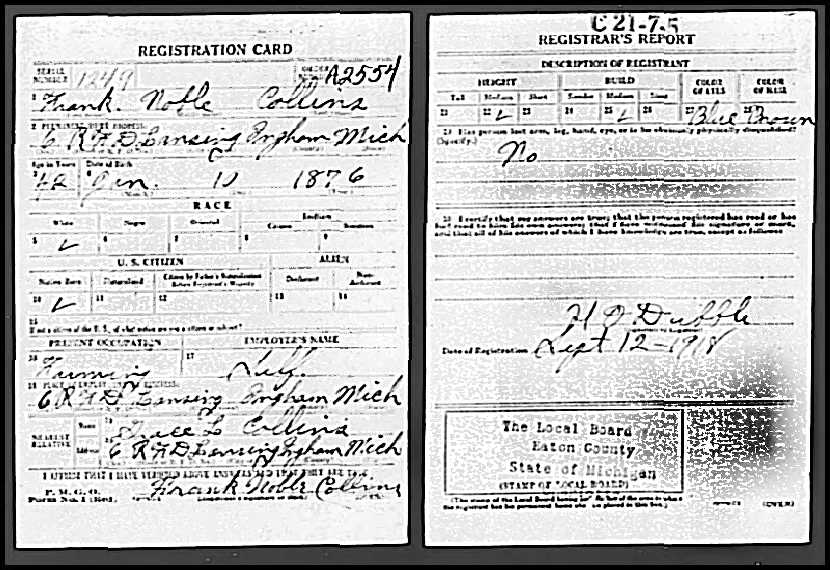 REGISTRATION CARD
SERIAL NUMBER 1249 ORDER NUMBER A2554
1 Frank Noble Collins
2 PERMANENT HOME ADDRESS:
6 R F D Lansing Ingham Mich
Age in Years Date of Birth
3 42 4 Jan. 10 1876
RACE
White Negro Oriental Indian
Citizen Noncitizen
5 ✓ 6 7 8 9
U. S. CITIZEN ALIEN
Native Born Naturalized Citizen by Father's Naturalization Before Registrant's Majority Declarant Non-declarant
10 ✓ 11 12 13 14
15
If not a citizen of the U. S., of what nation are you a citizen or subject?
PRESENT OCCUPATION EMPLOYER'S NAME
16 Farming 17 Self.
18 PLACE OF EMPLOYMENT OR BUSINESS:
6 R F D Lansing Ingham Mich
NEAREST RELATIVE Name 19 Grace L Collins
Address 20 6 R F D Lansing Ingham Mich
I AFFIRM THAT I HAVE VERIFIED ABOVE ANSWERS AND THAT THEY ARE TRUE
P. M. G. O.
Form No. 1 (Red) Frank Noble Collins
C 21-7-5
REGISTRAR'S REPORT
DESCRIPTION OF REGISTRANT
HEIGHT BUILD COLOR OF EYES COLOR OF HAIR
Tall Medium Short Slender Medium Stout
21 22 ✓ 23 24 25 ✓ 26 27 Blue 28 Brown
29 Has person lost arm, leg, hand, eye, or is he obviously physically disqualified?
(Specify.)
No
30 I certify that my answers are true; that the person registered has read or has
had read to him his own answers; that I have witnessed his signature or mark,
and that all of his answers of which I have knowledge are true, except as follows:
H D Dubble
Date of Registration Sept 12-1918
The Local Board
Eaton County
State of Michigan
(STAMP OF LOCAL BOARD)